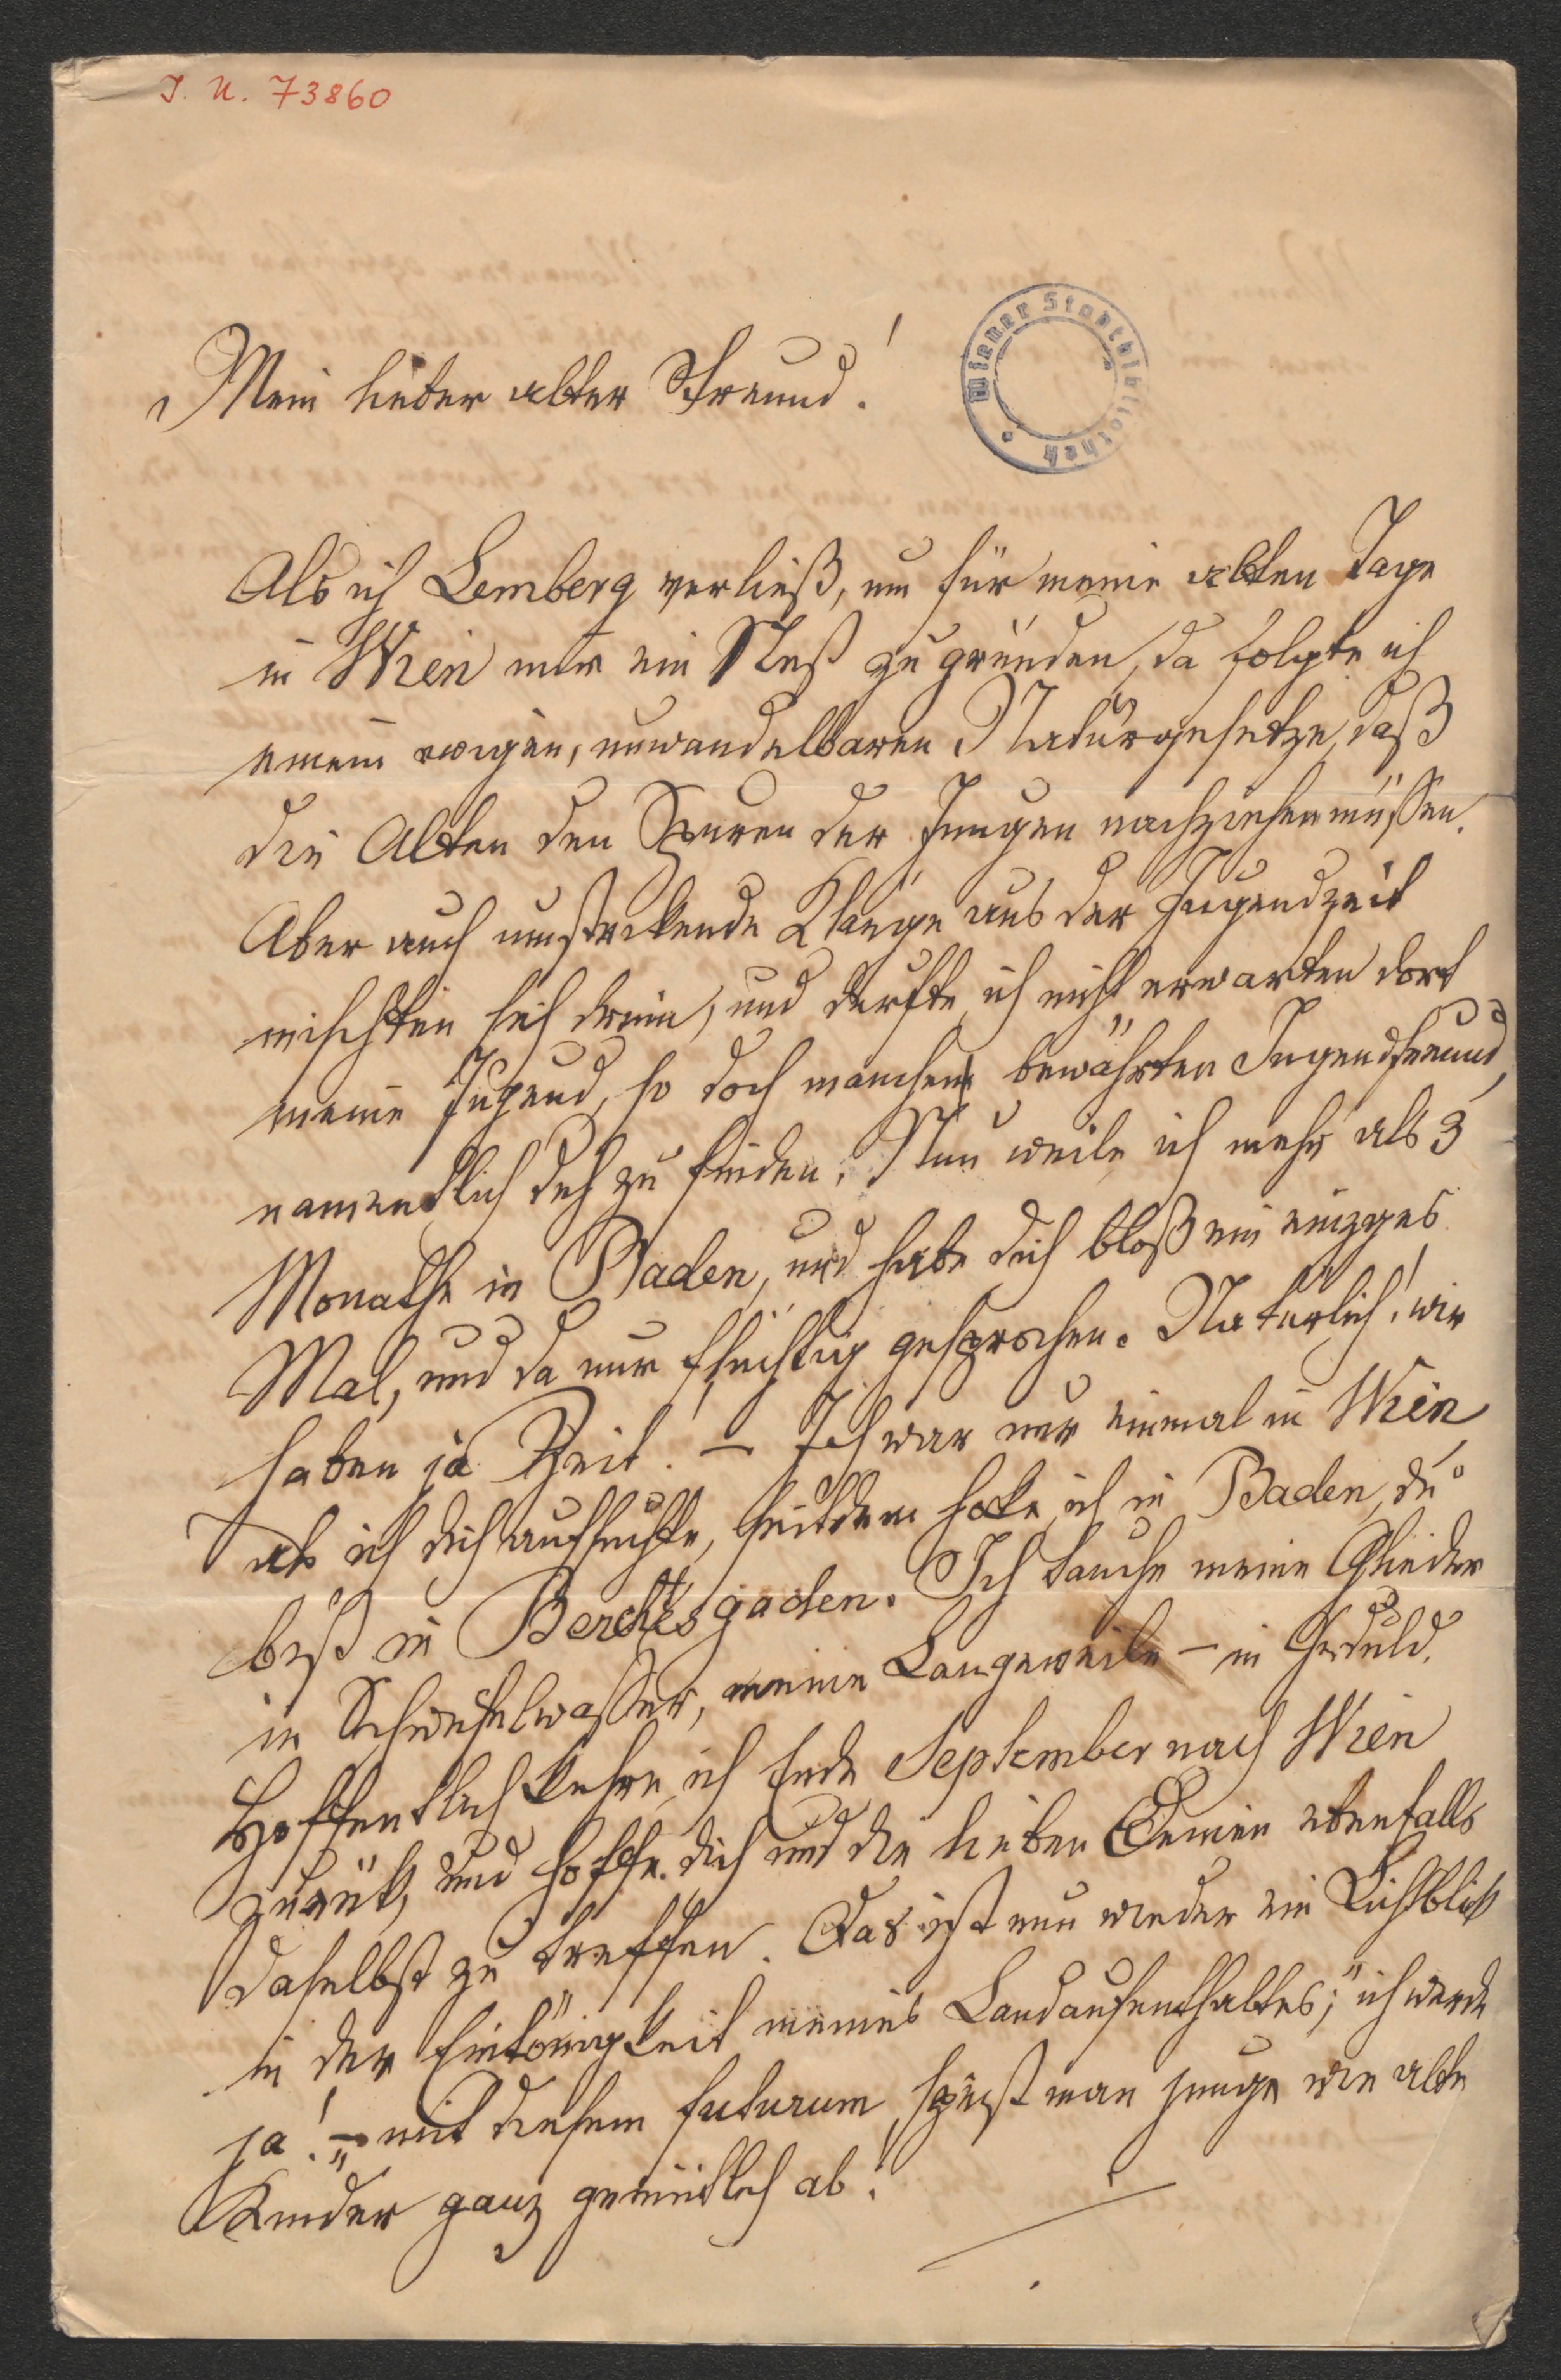 I. N. 73860
Wiener Stadtbibliothek
Mein lieber alter Freund!
Als ich Lemberg verließ, um für meine alten Tage
in Wien mir ein Nest zu gründen, da folgte ich
einem ewigen, unwandelbaren Naturgesetze, daß
die Alten den Spuren der Jungen nachziehen müssen.
Aber auch Klänge aus der Jugendzeit
mischten sich drein, und durfte ich nicht erwarten dort
meine Jugend, so doch manchen bewährten Jugendfreund,
namendlich dich zu finden. Nun weile ich mehr als 3
Monathe in Baden, und habe dich bloß ein einziges
Mal, und da nur flüchtig gesprochen. Natürlich! wir
haben ja Zeit. – Ich war nur einmal in Wien
als ich dich aufsuchte, seitdem hocke ich in Baden, du
bist in Berchtesgaden. Ich tauche meine Glieder
in Schwefelwasser, meine Langeweile – in Geduld.
Hoffentlich kehre ich Ende September nach Wien
zurück, und hoffe dich und die lieben Deinen ebenfalls
daselbst zu treffen. Das ist nun wieder ein Lichtblick
in der Eintönigkeit meines Landaufenthaltes; "ich werde
ja! –" mit diesem futurum speist man junge wie alte
Kinder ganz gemüthlich ab!